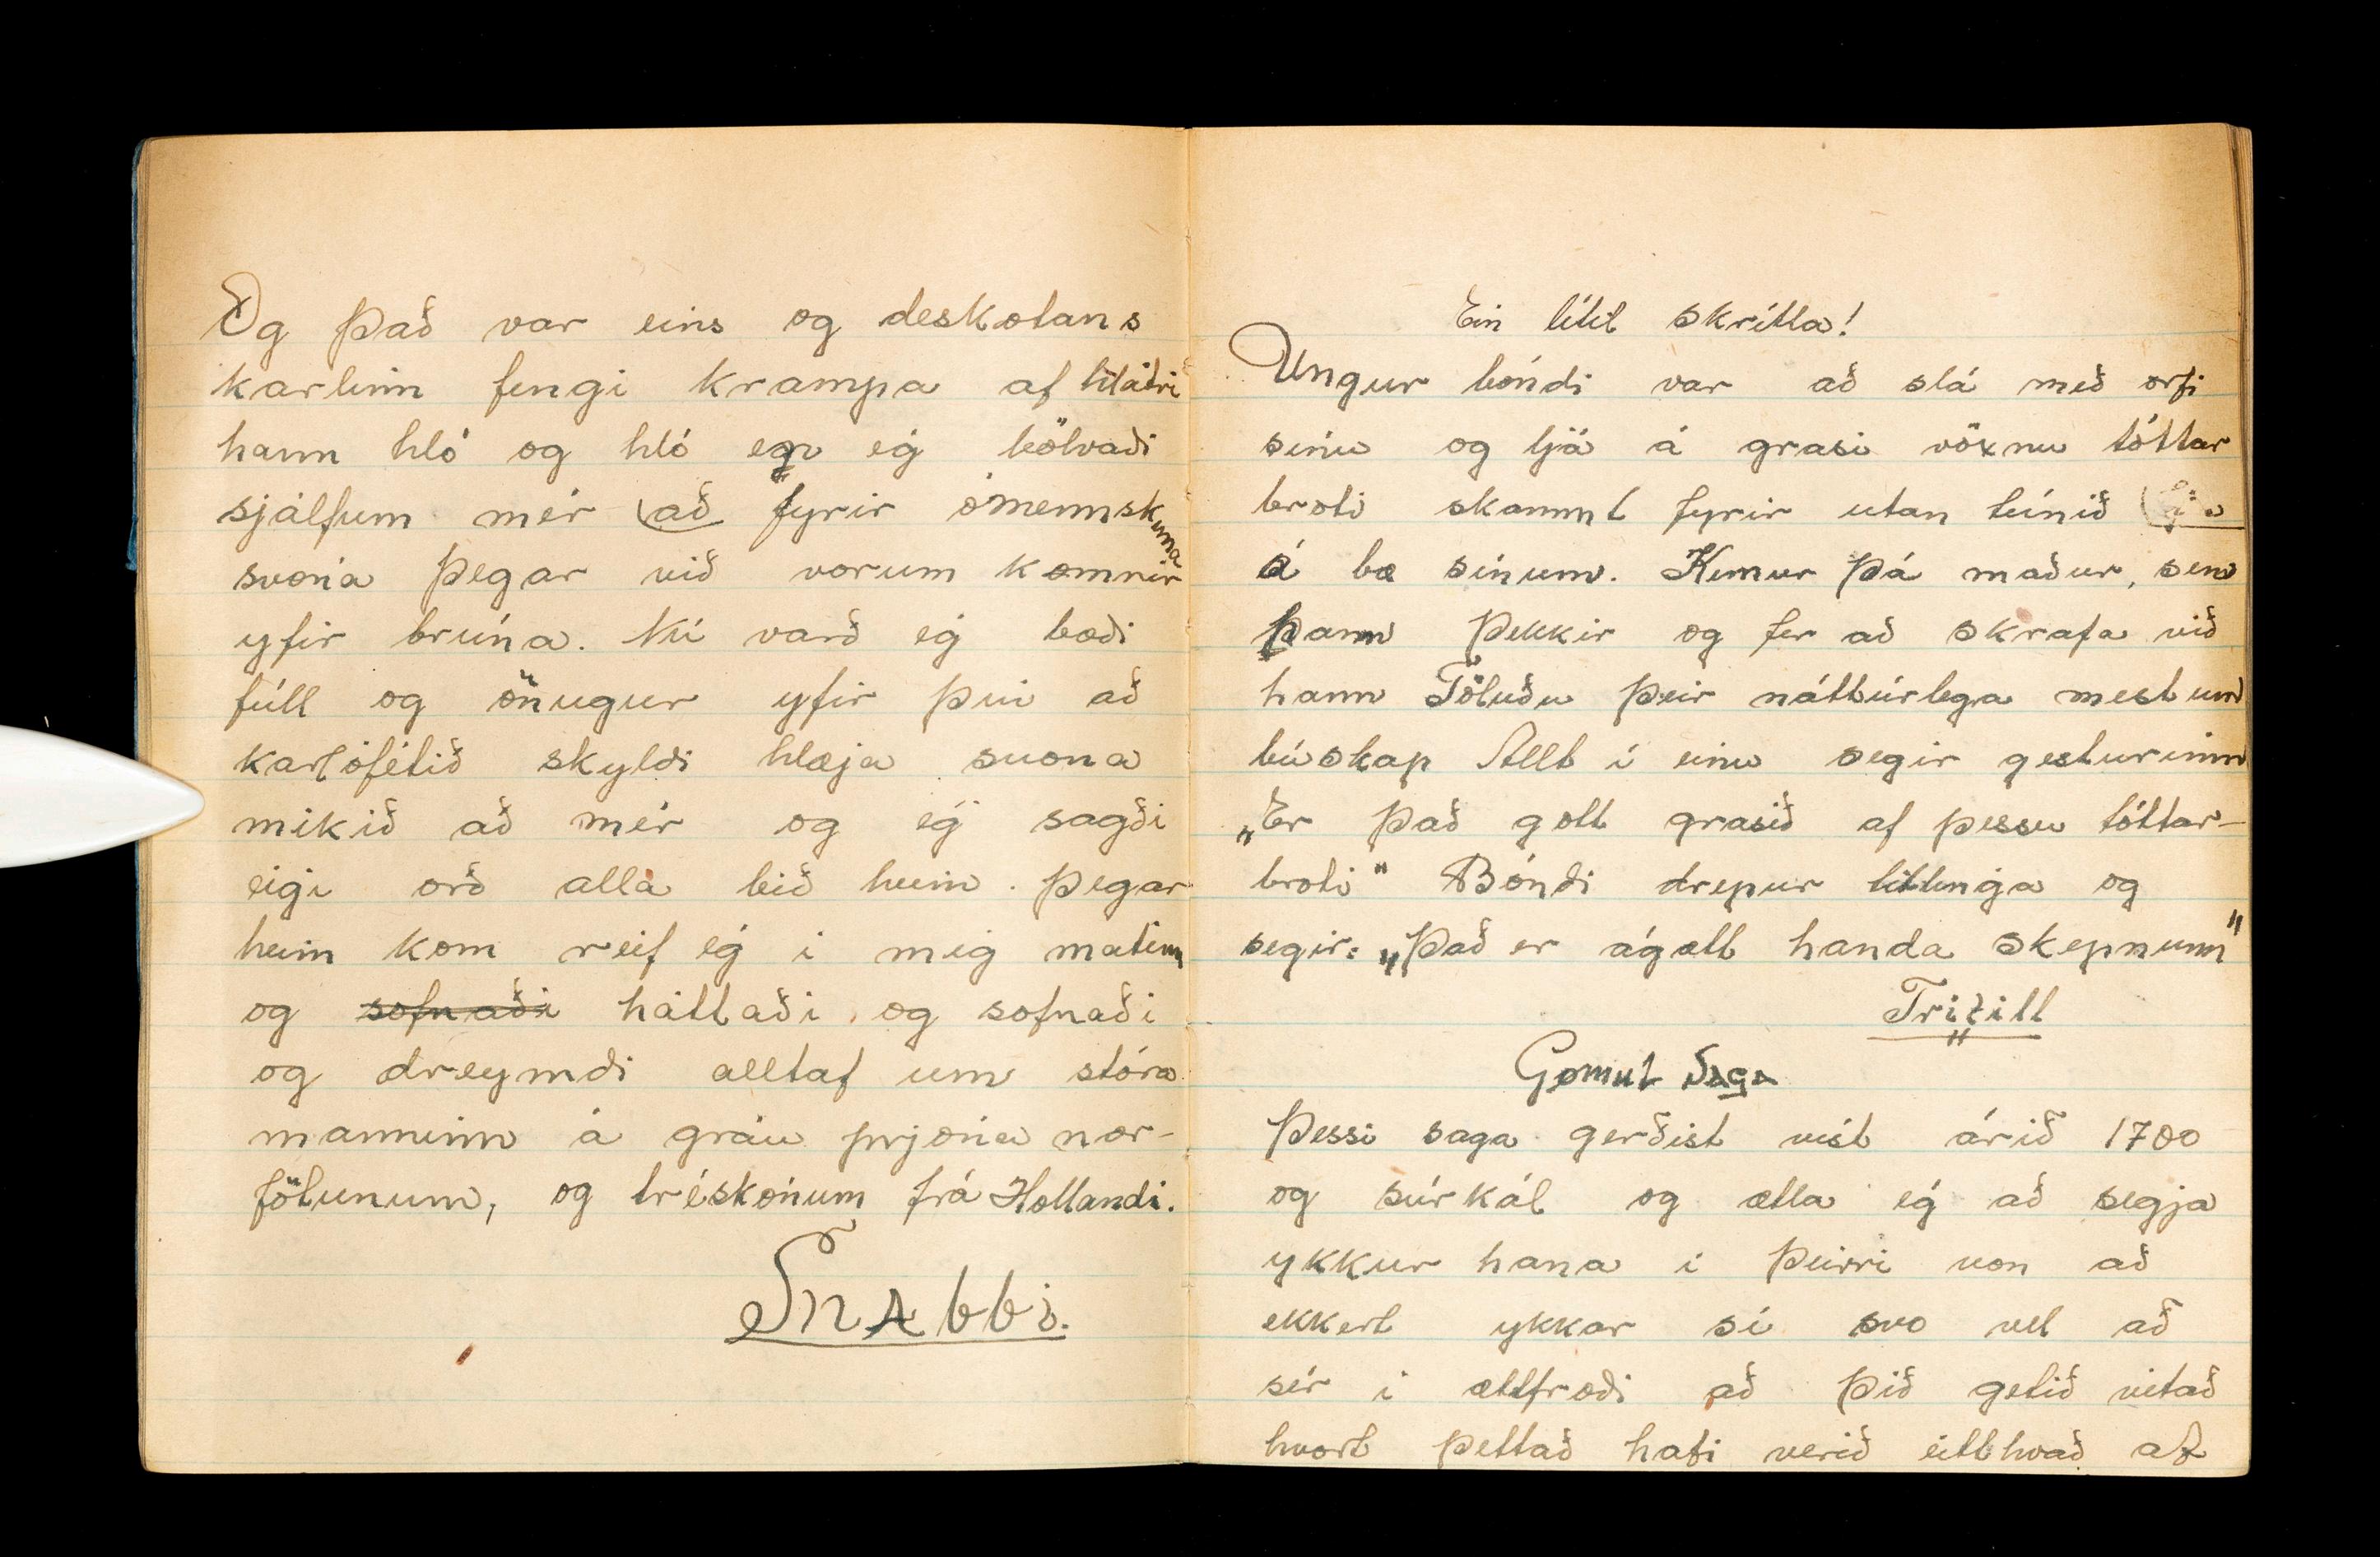 Og það var eins og deskotans
karlinn fengi krampa af hlátri
hann hló og hló en ég bölvaði
sjálfum mér (að fyrir ómennskuna
svona þegar við vorum komnir
yfir brúna. Nú varð ég bæði
fúll og önugur yfir því að
karlófétið skyldi hlæja svona
mikið að mér og ég sagði
eigi orð alla leið heim. Þegar
heim kom reif ég i mig matinn
og sofnaði háttaði og sofnaði
og dreymði alltaf um stóra
manninn á gráu prjóna nær-
fötunum, og tréskónum frá Hollandi.
Snabbi.
Ein lítil skrítla!
Ungur bóndi var að slá með orfi
sínu og ljá á grasi vöxnu tóttar
broti skammt fyrir utan túnið
á bæ sínum. Kemur þá maður, sem
hann þekkir og fer að skrafa við
hann Töluðu þeir náttúrlega mest um
búskap Allt í einu segir gesturinn
„Er það gott grasið af þessu tóttar-
broti" Bóndi drepur tittlinga og
segir: „Það er ágætt handa skepnum"
Tritill
Gomul Saga
Þessi saga gerðist víst árið 1700
og súrkál og ætla ég að segja
ykkur hana i þeirri von að
ekkert ykkar sé svo vel að
sér i ættfræði að þið getið vitað
hvort þettað hafi verið eitthvað af